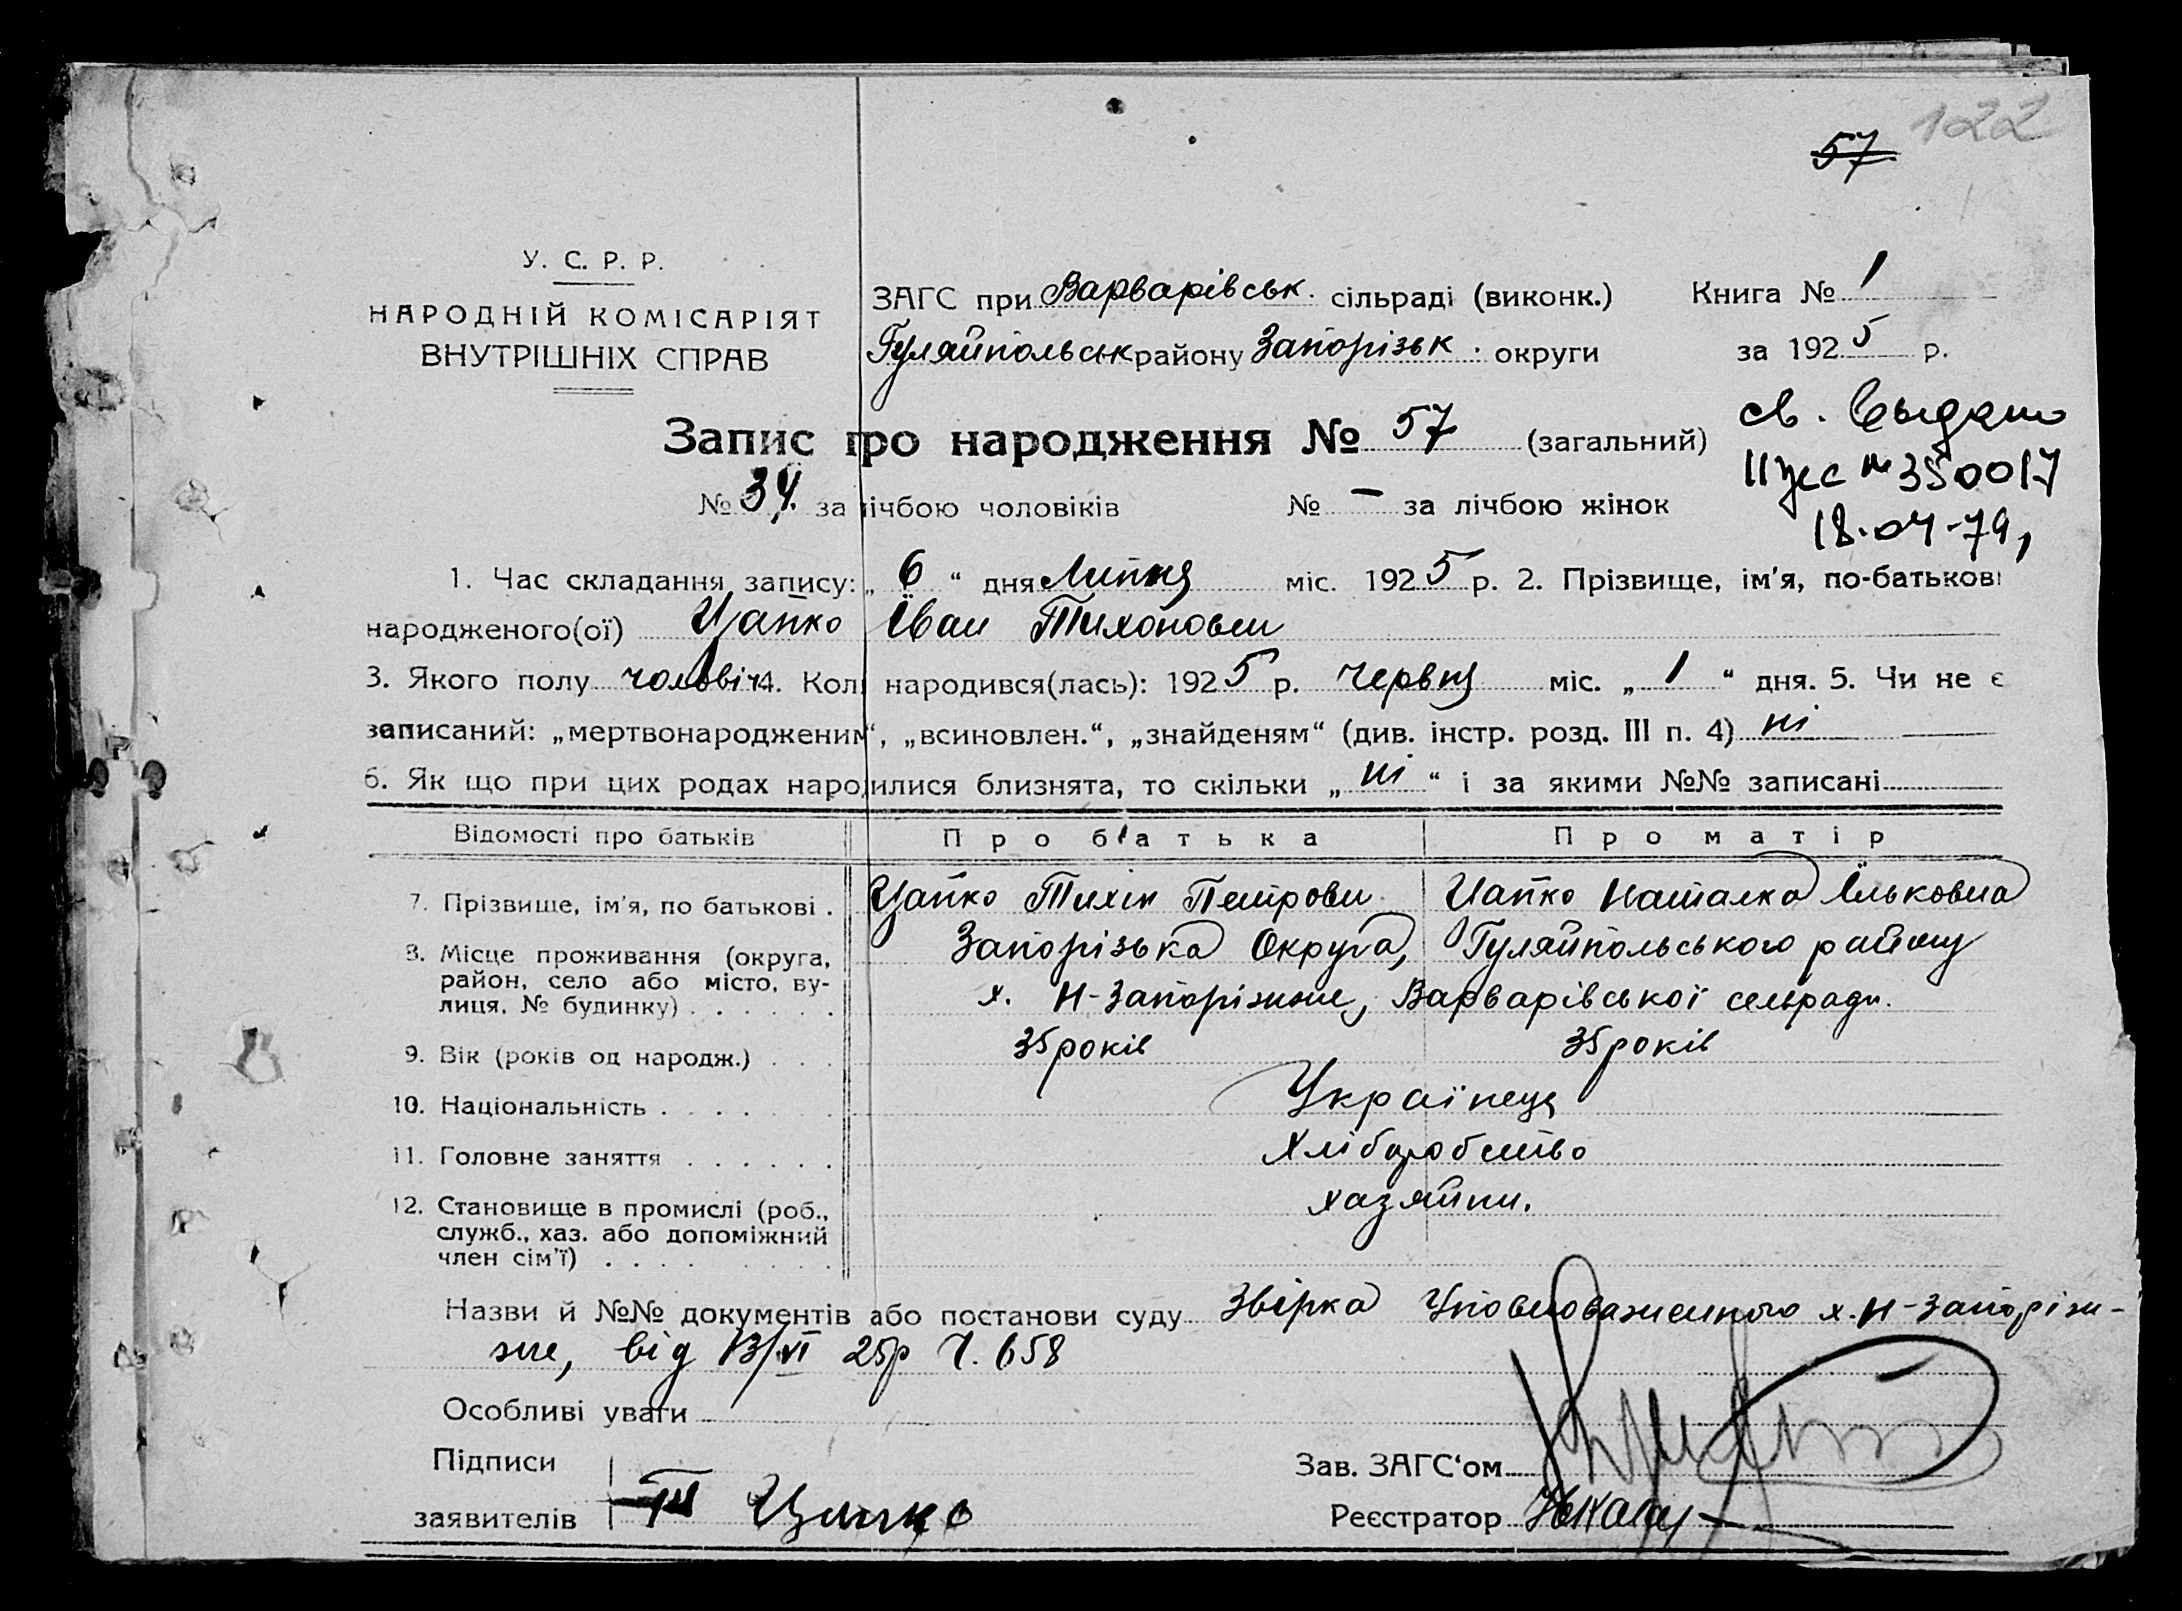 122
57
У. С. Р. Р.
НАРОДНІЙ КОМІСАРІЯТ
ВНУТРІШНІХ СПРАВ
ЗАГС при Варварівськ. сільраді (виконк.) Книга № 1
Гуляйпольськ району Запорізьк. округи за 1925 р.
Запис про народження № 57 (загальний)
св. выдано
№ 34 за лічбою чоловіків № – за лічбою жінок
№ 350017
18-04-79
1. Час складання запису: „6“ дня Липня міс. 1925 р. 2. Прізвище, ім'я, по-батькові
народженого(ої) Цапко Іван Тихонович
3. Якого полу чоловіч 4. Коли народився(лась): 1925 р. червня міс. „1“ дня. 5. Чи не є
записаний: „мертвонародженим“, „всиновлен.“, „знайденям“ (див. інстр. розд. III п. 4) ні
6. Як що при цих родах народилися близнята, то скільки „ні“ і за якими №№ записані
Відомості про батьків Про батька Про матір
7. Прізвище, ім'я, по батькові . Цапко Тихін Петрович Цапко Наталка Ільковна
8. Місце проживання (округа, Запорізька Округа, Гуляйпольського району
район, село або місто, ву-
лиця, № будинку) . . . . . . х. Н-Запоріжже, Варварівської сельради.
9. Вік (років од народж.) . . . 35 років 35 років
10. Національність . . . . Українець
11. Головне заняття . . . . . . Хліборобство
12. Становище в промислі (роб., хазяїни.
служб., хаз. або допоміжний
член сім'ї) . . . . . . . .
Назви й №№ документів або постанови суду Звірка Уповноваженого х. Н-Запоріж-
же, від 13/VI 25р Ч. 658
Особливі уваги
Підписи
Зав. ЗАГС'ом
заявителів Цапко
Реєстратор